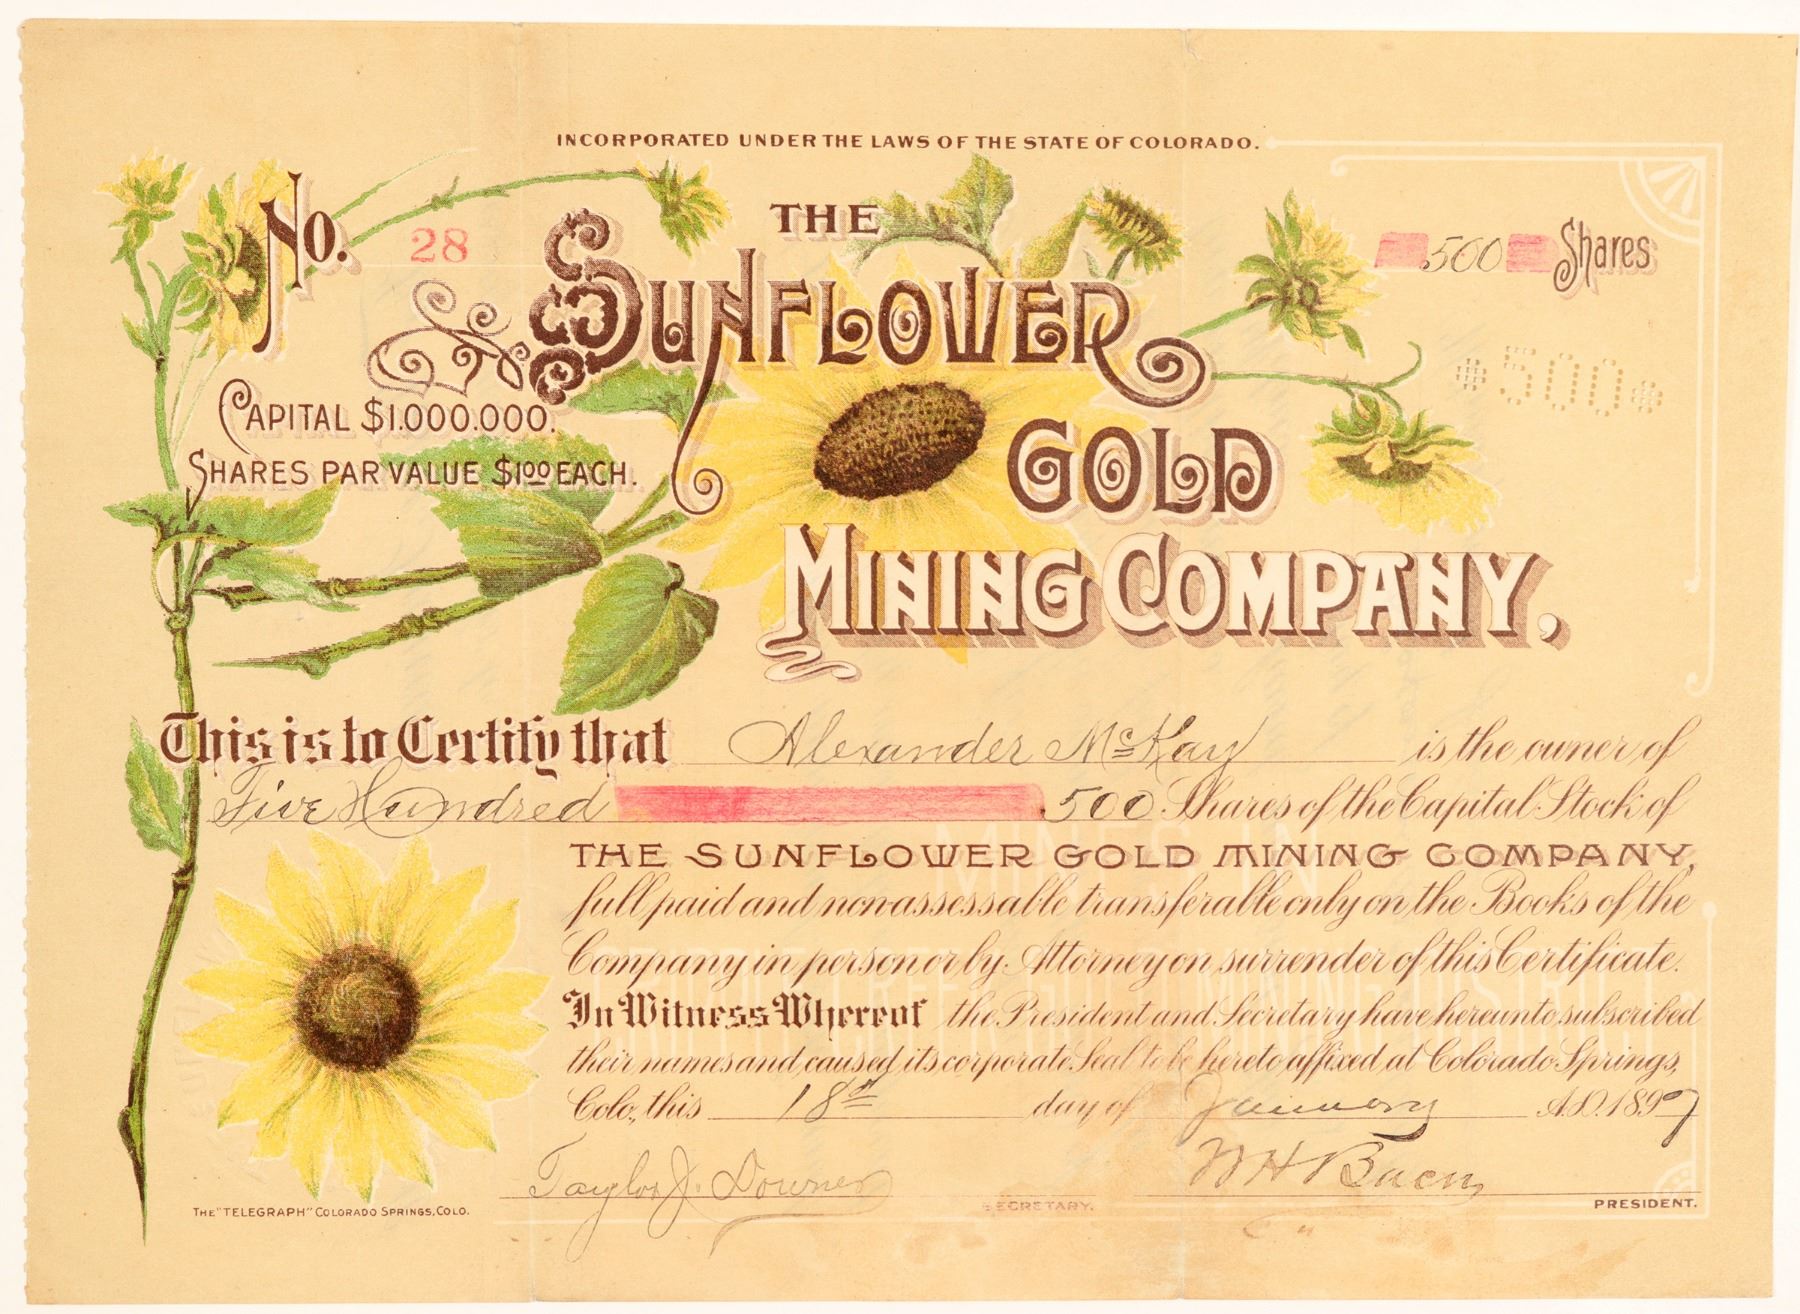 INCORPORATED UNDER THE LAWS OF THE STATE OF COLORADO.
No. 28
THE
SUNFLOWER
GOLD
MINING COMPANY,
500 Shares
$500$
CAPITAL $1.000.000.
SHARES PAR VALUE $1.00 EACH.
This is to Certify that Alexander McKay is the owner of
Five Hundred 500 Shares of the Capital Stock of
THE SUNFLOWER GOLD MINING COMPANY,
full paid and non-assessable transferable only on the Books of the
Company in person or by Attorney on surrender of this Certificate.
In Witness Whereof the President and Secretary have hereunto subscribed
their names and caused its corporate Seal to be hereto affixed at Colorado Springs,
Colo, this 18th day of January A.D. 1897
Taylor J. Downer SECRETARY.
W H Bacon PRESIDENT.
MINES IN
CRIPPLE CREEK GOLD MINING DISTRICT
THE "TELEGRAPH" COLORADO SPRINGS, COLO.